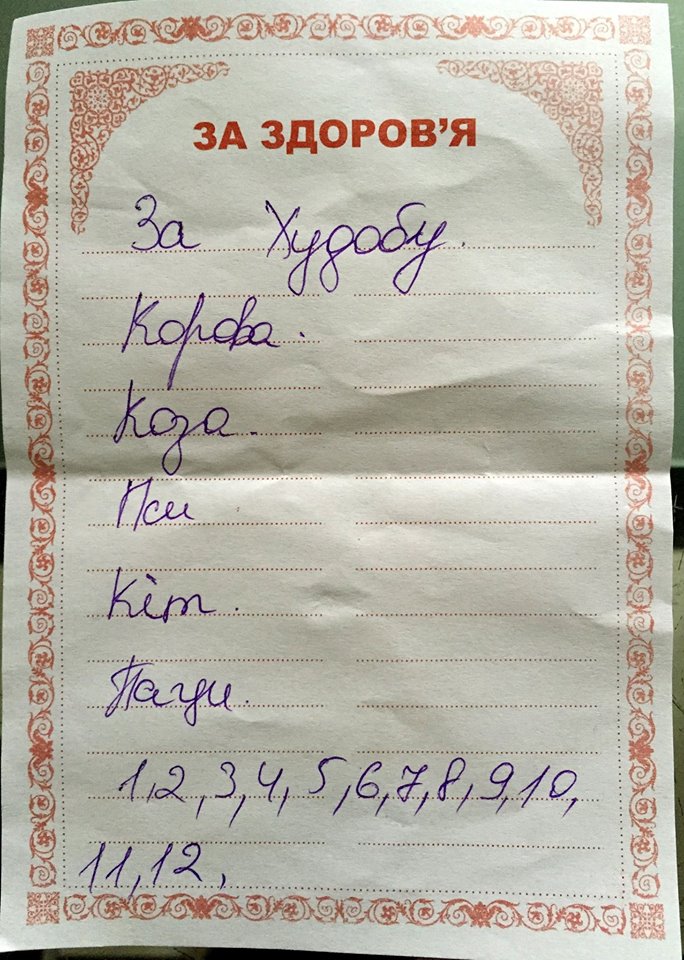 ЗА ЗДОРОВ’Я
За Худобу.
Корова.
Коза.
Пси
Кіт.
Паци.
1,2,3,4,5,6,7,8,9,10,
11,12,